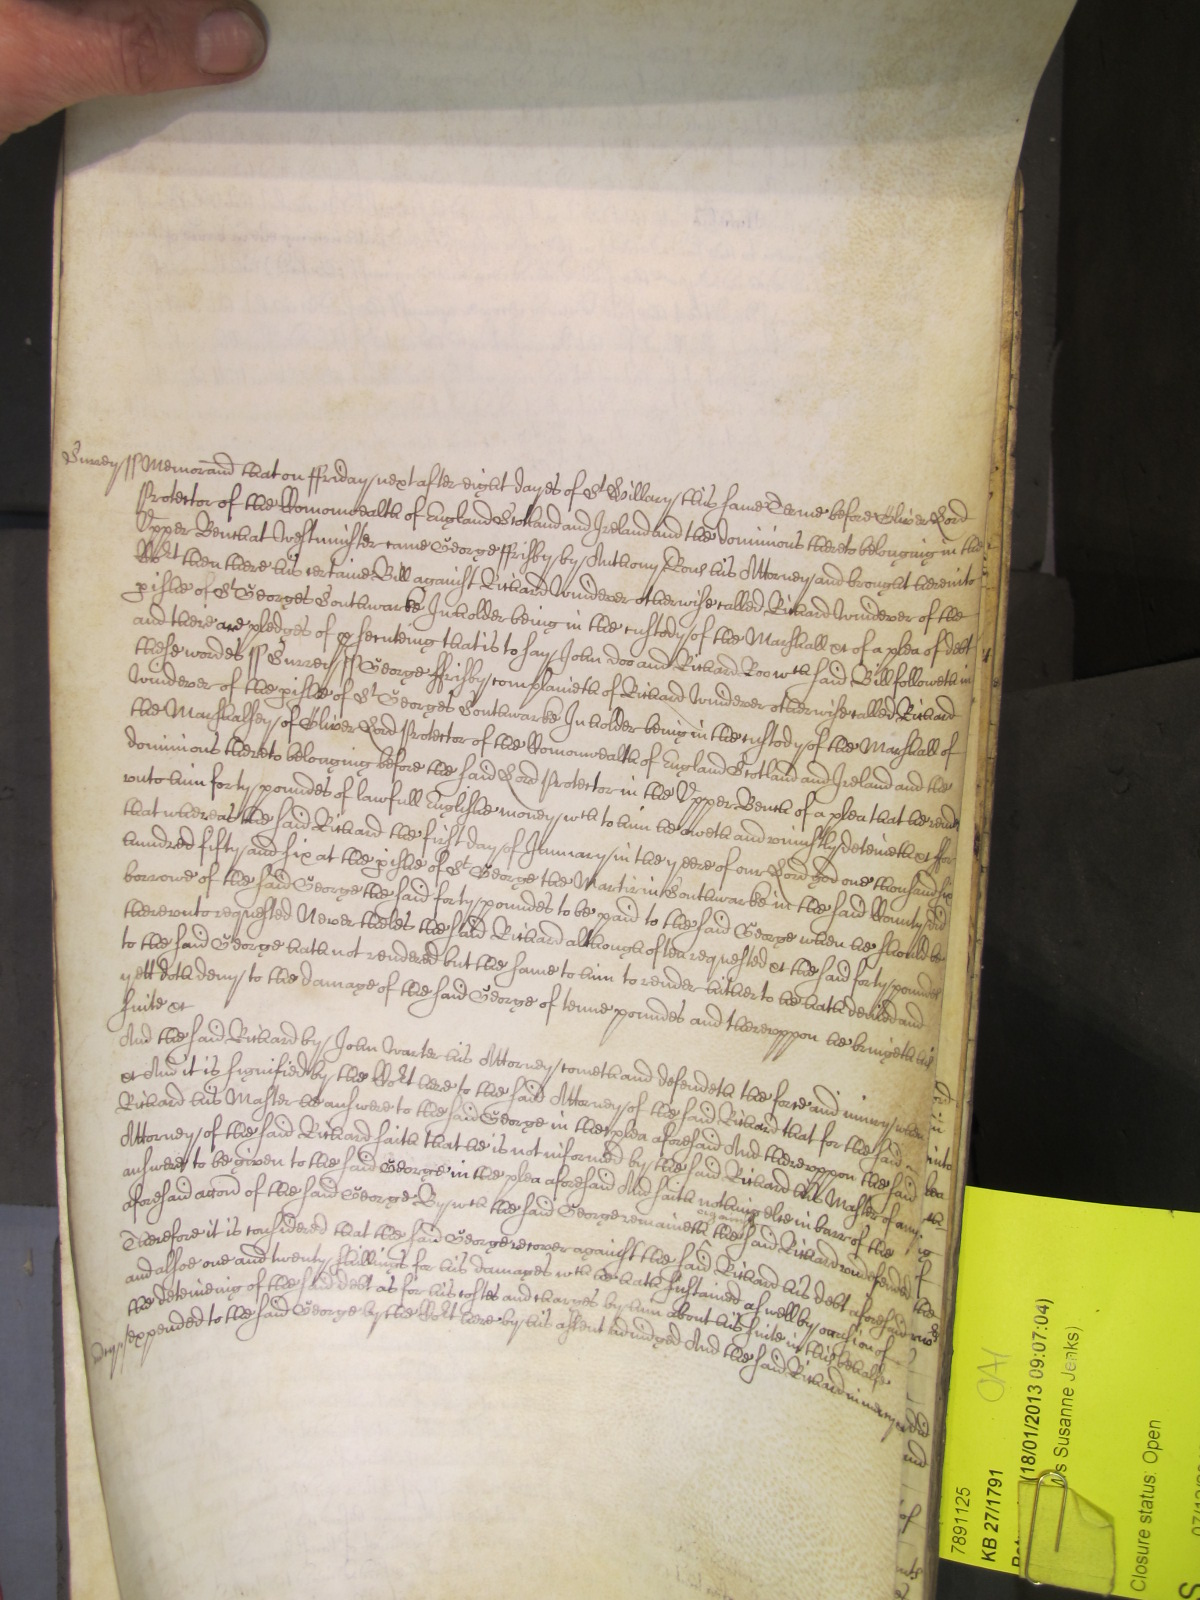 Surrey ss Memorand that on ffriday next after eight dayes of St Hillary this same Terme before Oliver Lord
Protector of the Comonwealth of England Scotland and Ireland and the dominions thereto belonging in the
Upper Bench at Westminster came George ffrisby by Anthony Rous his Attorney and brought here into
Cort then there his certaine Bill against Richard Winderer otherwise called Richard Winderer of the
pishe of St Georges Southwarke Inholder being in the custody of the Marshall &c of a plea of debt
and there are pledges of p secuteing that is to say John Doo and Richard Roo wch said Bill followeth in
these wordes ss Surrey ss George ffrisby complaineth of Richard Winderer otherwise called Richard
Winderer of the pishe of St Georges Southwarke Inholder being in the custody of the Marshall of
the Marshalsey of Oliver Lord Protector of the Comonwealth of England Scotland and Ireland and the
dominions thereto belonging before the said Lord Protector in the Upper Bench of a plea that he rend
unto him forty poundes of lawfull English money wch to him he oweth and uniustly deteineth &c ffor
that whereas the said Richard the first day of January in the yeere of our Lord god one thousand six
hundred fifty and six at the pishe of St George the Martir in Southwarke in the said County did
borrowe of the said George the said forty poundes to be paid to the said George when he should be
thereunto requested Never theles the said Richard although often requested &c the said forty poundes
to the said George hath not rendered but the same to him to render hitherto he hath denied and
yett doth deny to the damage of the said George of tenne poundes and thereuppon he bringeth his
suite &c
And the said Richard by John Warter his Attorney cometh and defendeth the force and iniury when
&c And it is signified by the Cort here to the said Attorney of the said Richard that for the said
Richard his Master he answere to the said George in the plea aforesaid And thereuppon the said
Attorney of the said Richard saith that he is not informed by the said Richard his Master of any
answere to be given to the said George in the plea aforesaid And saith nothing else in barr of the
aforesaid accon of the said George By wch the said George remaineth against the said Richard undefended
Therefore it is considered that the said George recover against the said Richard his debt aforesaid
and alsoe one and twenty shillings for his damages wch he hath sustained as well by occasion of
the deteineing of the said debt as for his costes and charges by him about his suite in this behalfe
expended to the said George by the Cort here by his assent adiudged And the said Richard in mercy &c
7891125
KB 27/1791
(18/01/2013 09:07:04)
s Susanne Jenks)
Closure status: Open